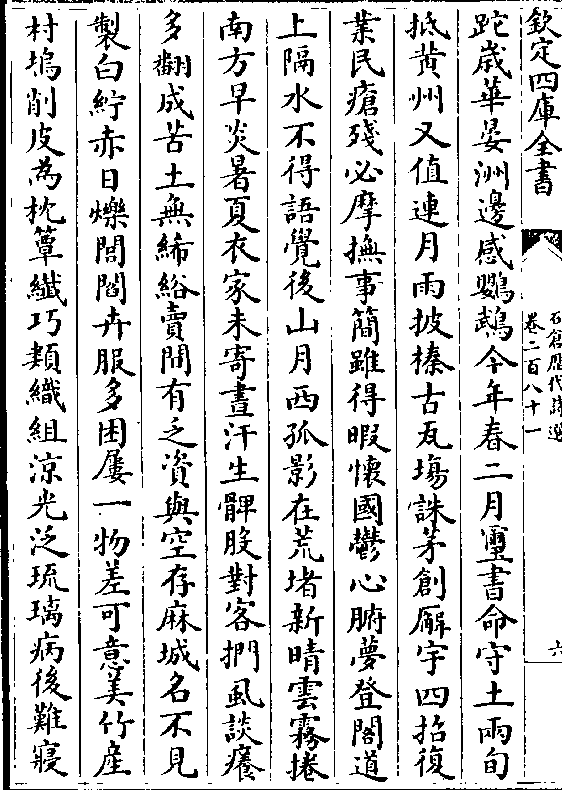 欽定四庫全書
石倉歷代詩選
卷二百八十一
六
跎歲華晏洲邊感鸚鵡今年春二月璽書命守土兩旬
抵黄州又值連月雨披榛古瓦塲誅茅創廨宇四招復
業民瘡殘必摩撫事簡雖得暇懷國鬱心腑夢登閣道
上隔水不得語覺後山月西孤影在荒堵新晴雲霧捲
南方早炎暑夏衣家未寄晝汗生髀股對客捫虱談癢
多翻成苦土無絺綌賣間有乏資與空存麻城名不見
製白紵赤日爍閭閻卉服多困屢一物差可意美竹産
村塢削皮為枕簟纖巧類織組涼光泛琉璃病後難寢